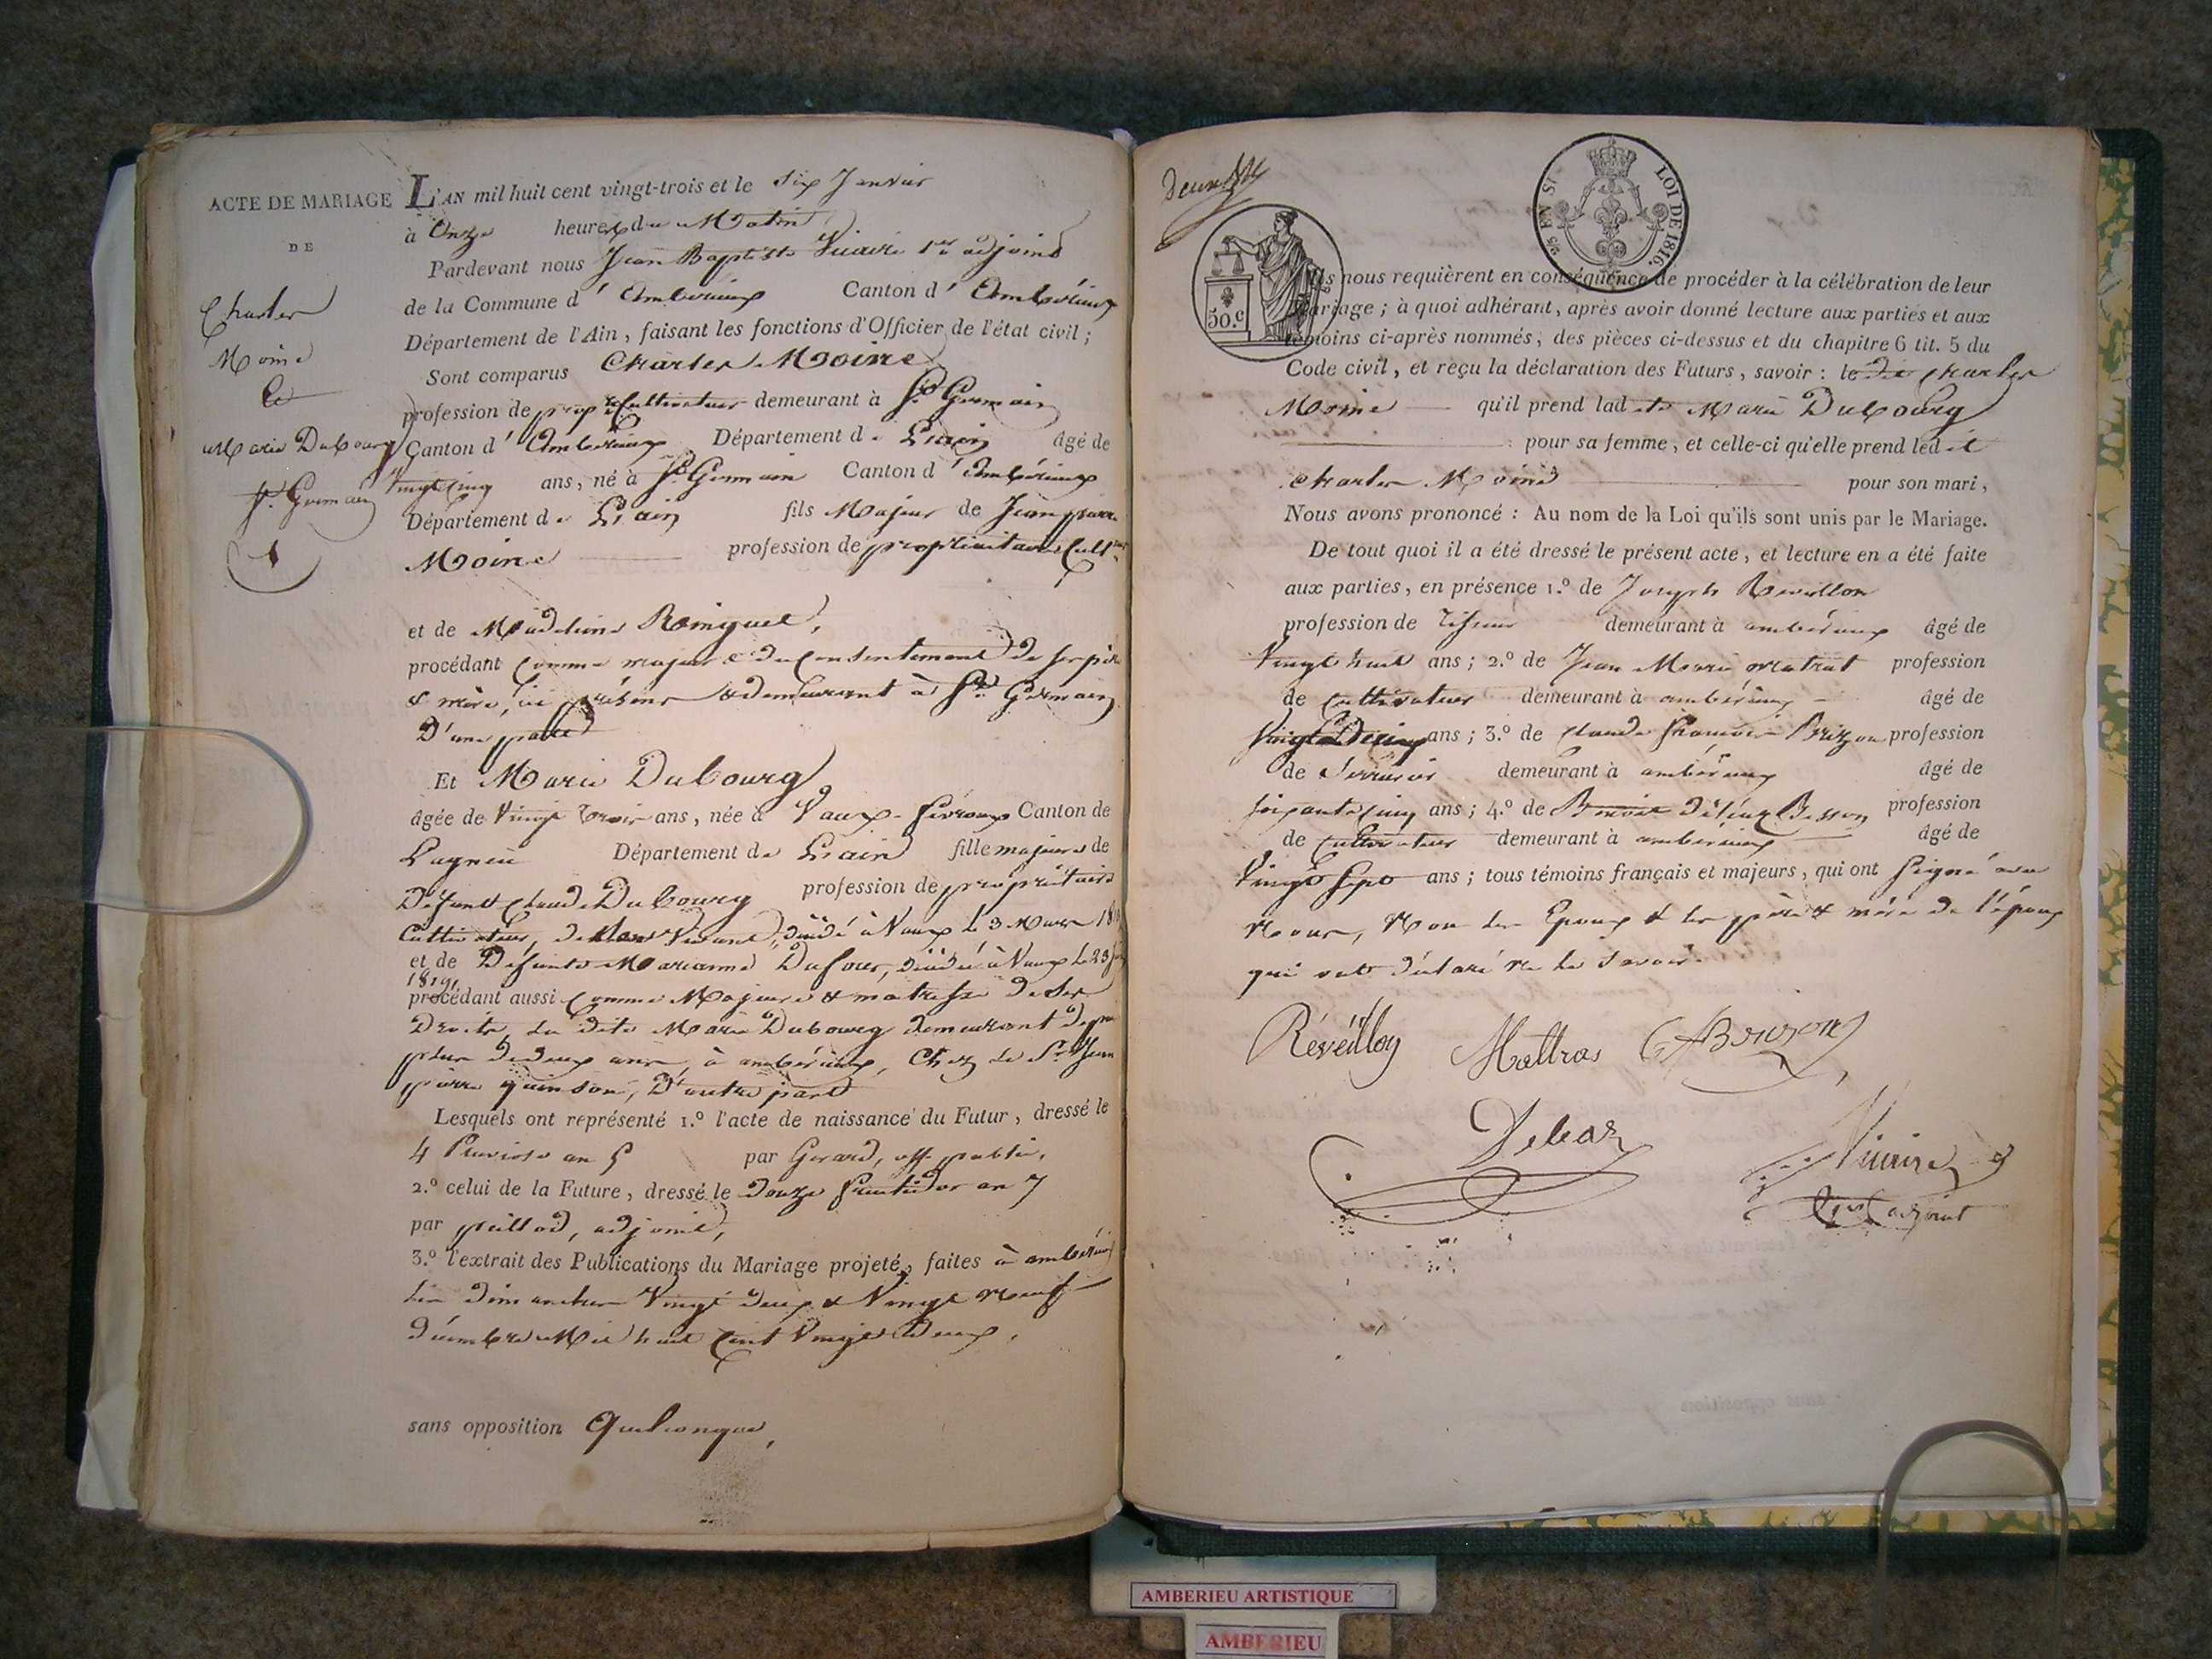 ACTE DE MARIAGE
DE
Charles
Moine
Et
Marie Dubourg
St. Germain
1
L'AN mil huit cent vingt-trois et le Six Janvier
à Onze heures du Matin
Pardevant nous Jean Baptiste Vicaire 1er adjoint
de la Commune d'Ambérieux Canton d'Ambérieux
Département de l'Ain, faisant les fonctions d'Officier de l'état civil;
Sont comparus Charles Moine
profession de propre Cultivateur demeurant à St Germain
Canton d'Ambérieux Département de L'ain âgé de
Vingt Cinq ans, né à St Germain Canton d'Ambérieux
Département de L'ain fils Majeur de Jean pierre
Moine profession de propriétaire Cultr
et de Madeleine
procédant Comme majeur & du Consentement de ses père
& mère, ici présens & demeurant à St Germain
D'une part
Et Marie Dubourg
âgée de Vingt Trois ans, née à Vaux-Févroux Canton de
Lagnieu Département de L'ain fille majeure de
Défunt Claude Dubourg profession de propriétaire
Cultivateur, décédé à Vaux le 3 Mars
et de Défunte Marianne Dufour, décédée à Vaux le 23
1819,
procédant aussi Comme Majeure & maitresse de Ses
Droits, La dite Marie Dubourg demeurant depuis
plus de deux ans, à ambérieux, Chez Le Sr Jean
pierre quinson, D'autre part
Lesquels ont représenté 1.º l'acte de naissance du Futur, dressé le
4 Pluviose an 5 par Gerard, off. public,
2.º celui de la Future, dressé le Douze fructidor an 7
par paillod, adjoint,
3.º l'extrait des Publications du Mariage projeté, faites à ambérieux
Les Dimanches Vingt Deux & Vingt Neuf
Décembre Mil huit Cent Vingt Deux,
sans opposition Quelconque,
SI-
LOI DE 1816.
50.c
Ils nous requièrent en conséquence de procéder à la célébration de leur
Mariage; à quoi adhérant, après avoir donné lecture aux parties et aux
témoins ci-après nommés, des pièces ci-dessus et du chapitre 6 tit. 5 du
Code civil, et reçu la déclaration des Futurs, savoir: le dit Charles
Moine qu'il prend ladite Marie Dubourg
pour sa femme, et celle-ci qu'elle prend ledit
Charles Moine pour son mari,
Nous avons prononcé: Au nom de la Loi qu'ils sont unis par le Mariage.
De tout quoi il a été dressé le présent acte, et lecture en a été faite
aux parties, en présence 1.º de Joseph Reveillon
profession de Tisseur demeurant à ambérieux âgé de
Vingt huit ans; 2.º de Jean Marie Matrat profession
de Cultivateur demeurant à ambérieux âgé de
Vingt ans; 3.º de Claude François Brizon profession
de Serrurier demeurant à ambérieux âgé de
Soixante Cinq ans; 4.º de profession
de Cultivateur demeurant à ambérieux âgé de
Vingt Sept ans; tous témoins français et majeurs, qui ont Signé avec
Nous, Non Les Epoux & les père & mère de l'époux
qui ont déclaré ne Le Savoir.
Réveillon Mattras Brizon
Vicaire
1er adjoint
AMBERIEU ARTISTIQUE
AMBERIEU